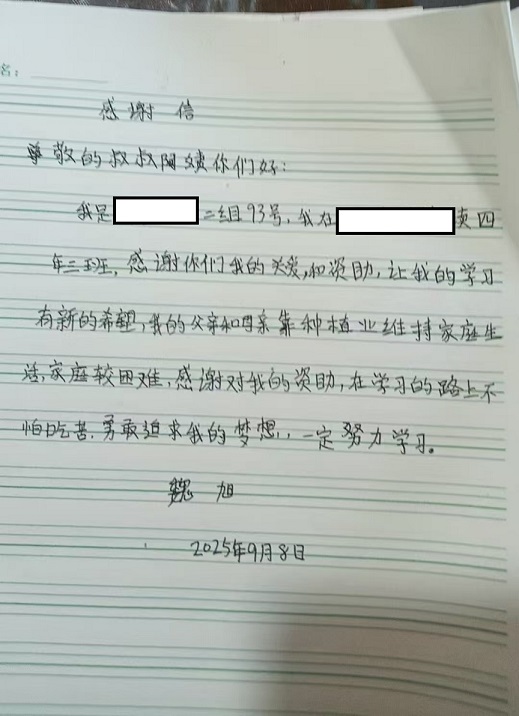 名:
感谢信
尊敬的叔叔阿姨你们好:
我是二组93号,我在读四
年三班,感谢你们我的关爱,和资助,让我的学习
有新的希望,我的父亲和母亲靠种植业维持家庭生
活,家庭较困难,感谢对我的资助,在学习的路上不
怕吃苦.勇敢追求我的梦想,一定努力学习。
魏旭
2025年9月8日